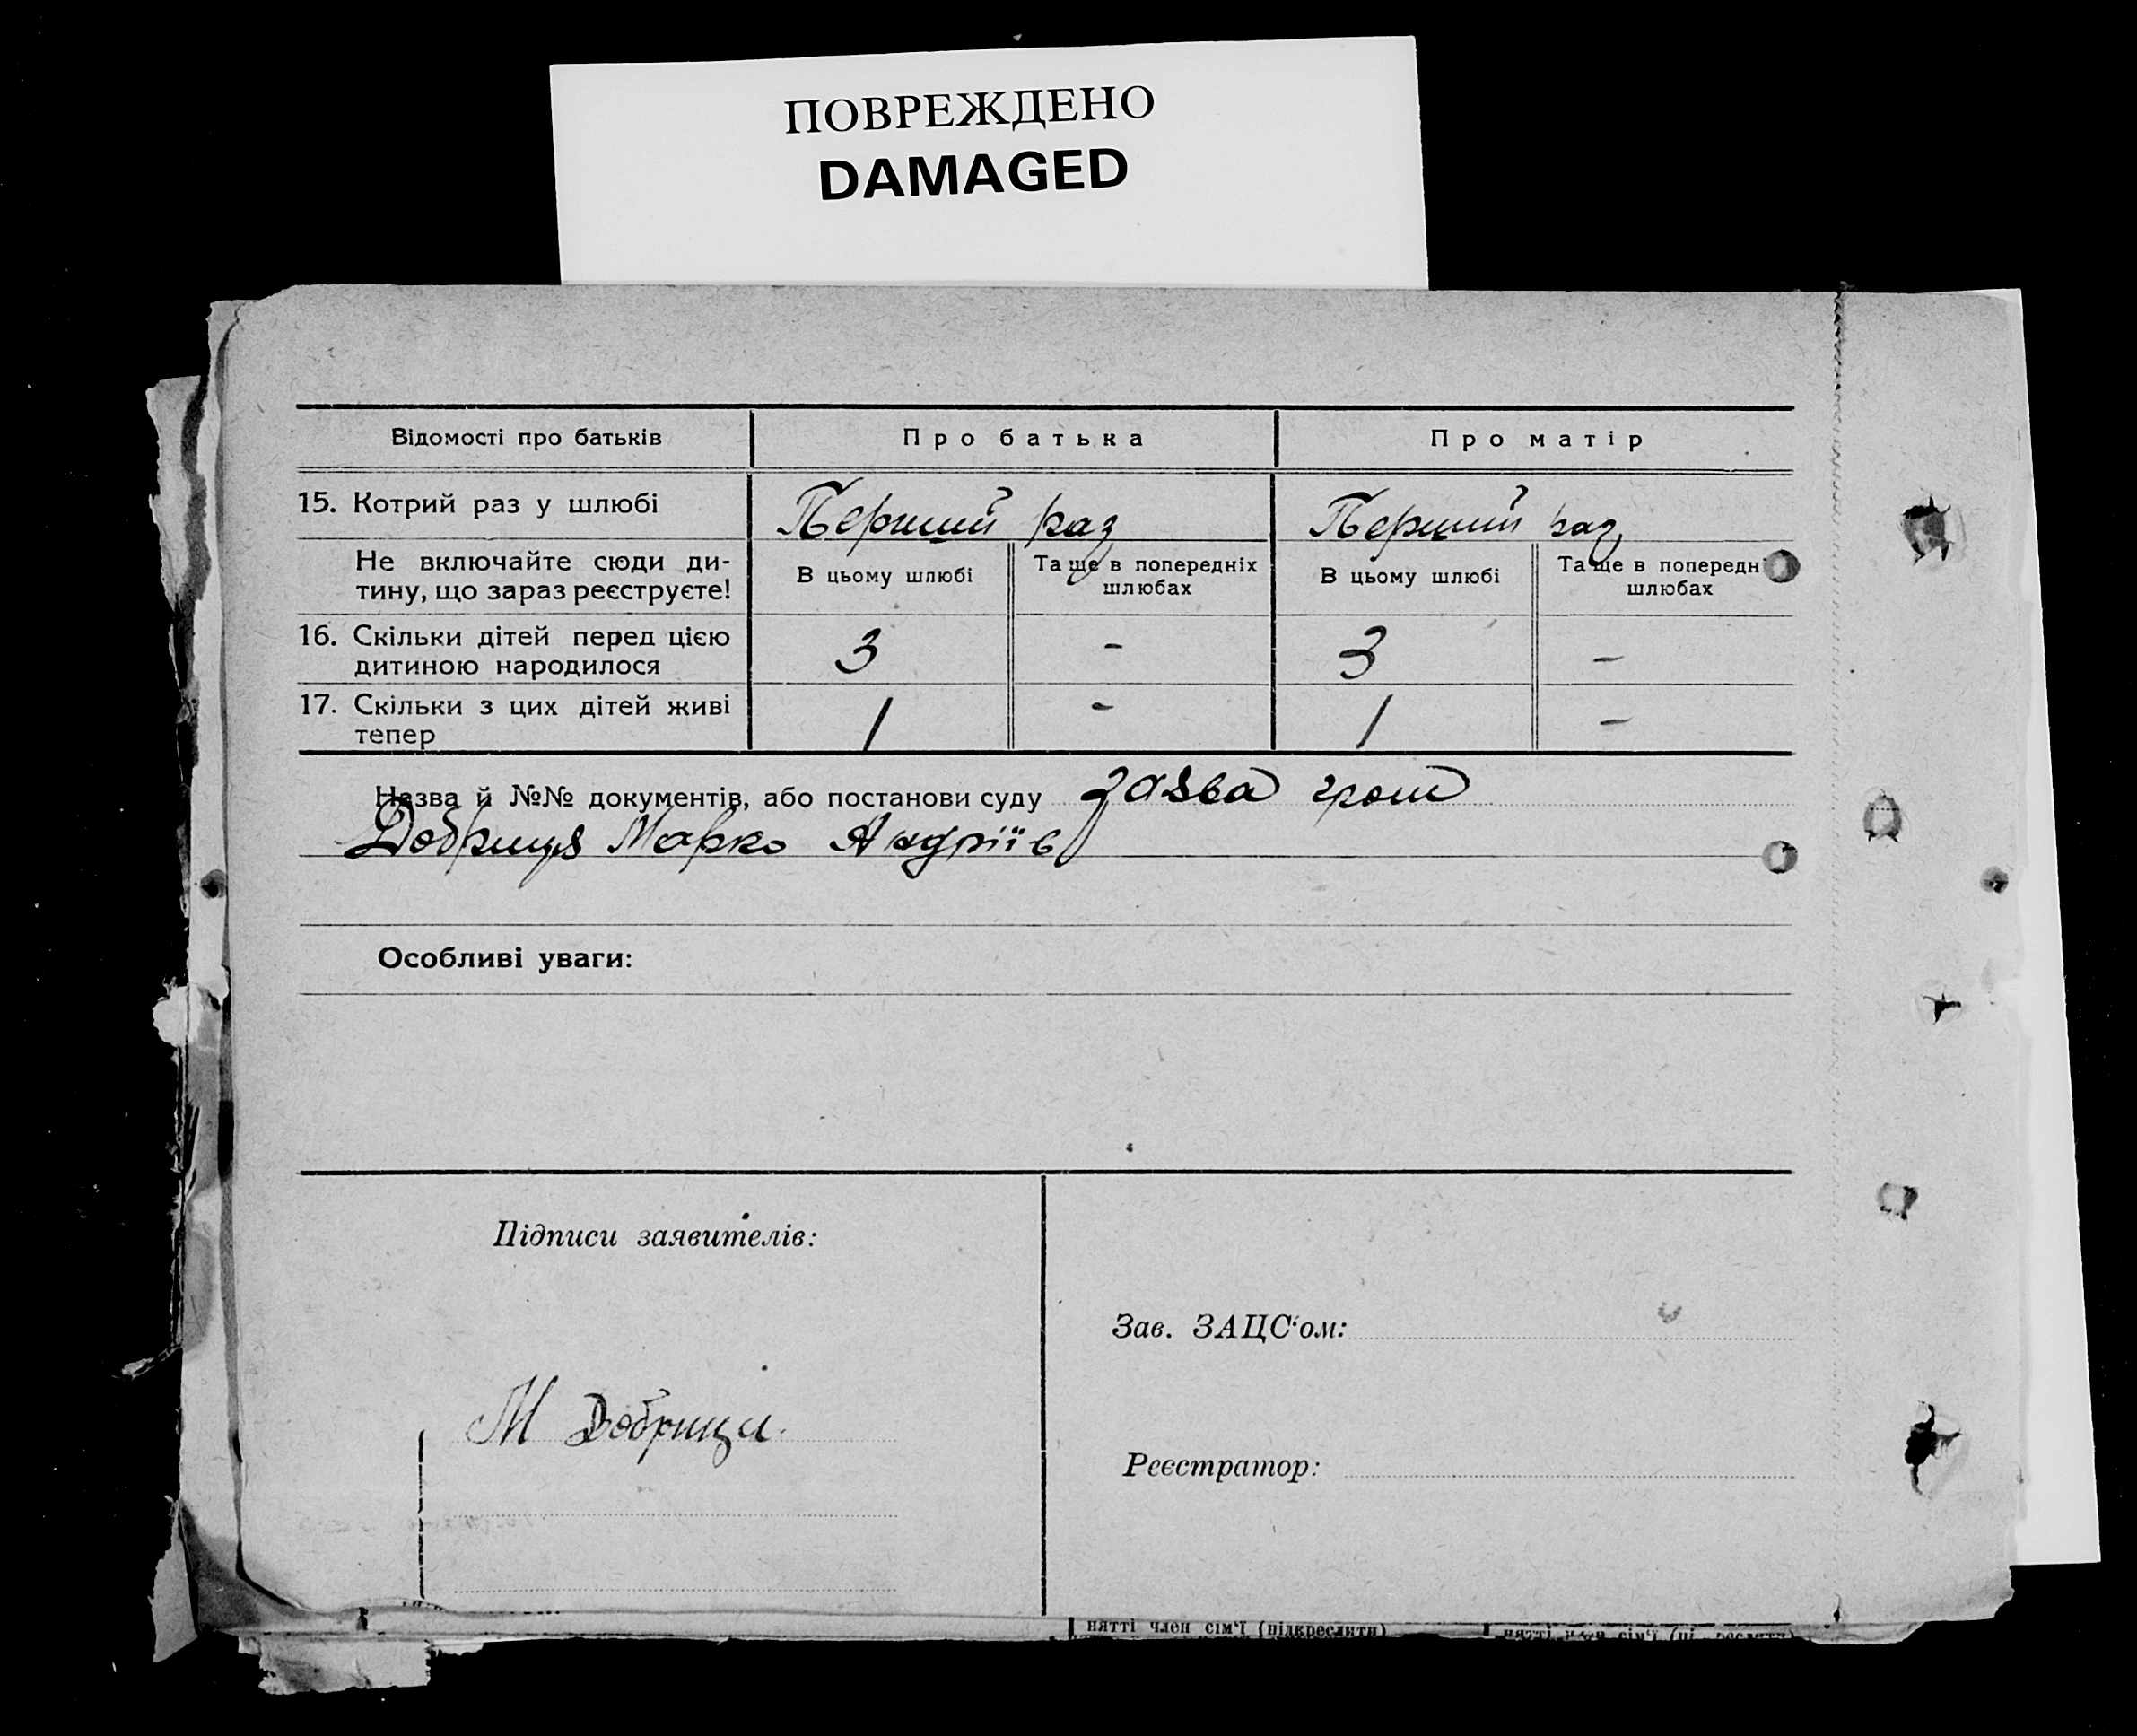 ПОВРЕЖДЕНО
DAMAGED
Відомості про батьків Про батька Про матір
15. Котрий раз у шлюбі Перший раз Перший раз
Не включайте сюди ди-
тину, що зараз реєструєте!
В цьому шлюбі Та ще в попередніх
шлюбах
В цьому шлюбі Та ще в попередн
шлюбах
16. Скільки дітей перед цією
дитиною народилося 3 - 3 -
17. Скільки з цих дітей живі
тепер 1 - 1 -
Назва й №№ документів, або постанови суду заява гром
Добриця Марко Андріїв
Особливі уваги:
Підписи заявителів:
Зав. ЗАЦС'ом:
М Добриця.
Реєстратор:
нятті член сім'ї (підкреслити)